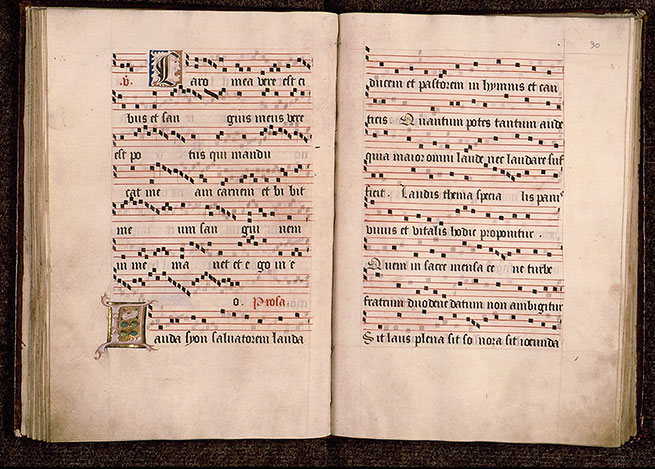 ℣. Caro mea vere est ci
bus et san guis meus vere
est po tus qui mandu
cat me am carnem et bi bit
me um san gui nem
in me ma net et e go in e
o. Prosa
Lauda syon salvatorem lauda
30
ducem et pastorem in hymnis et can
ticis Quantum potes tantum aude
quia maior omni laude nec laudare suf
ficit. Laudis thema specia lis panis
vivus et vitalis hodie proponitur.
Quem in sacre mensa ce ne turbe
fratrum duodene datum non ambigitur
Sit laus plena sit so nora sit iocunda